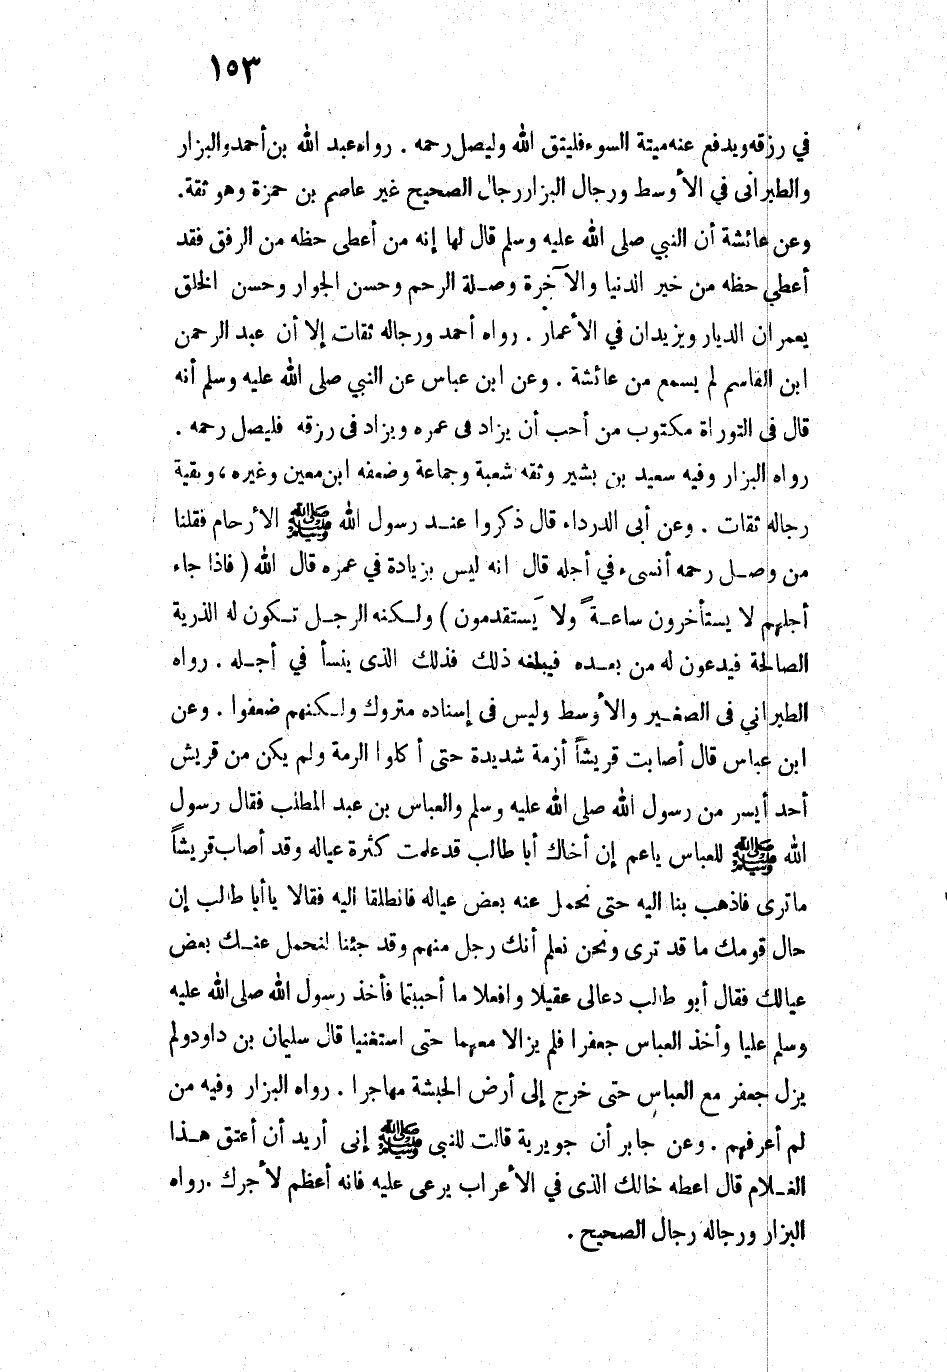 ١٥٣
في رزقه ويدفع عنه ميتة السوء فليتق الله وليصل رحمه . رواه عبد الله بن أحمد والبزار
والطبرانى في الأوسط ورجال البزار رجال الصحيح غير عاصم بن حمزة وهو ثقة.
وعن عائشة أن النبي صلى الله عليه وسلم قال لها إنه من أعطى حظه من الرفق فقد
أعطي حظه من خير الدنيا والآخرة وصلة الرحم وحسن الجوار وحسن الخلق
يعمران الديار ويزيدان في الأعمار . رواه أحمد ورجاله ثقات إلا أن عبد الرحمن
ابن القاسم لم يسمع من عائشة . وعن ابن عباس عن النبي صلى الله عليه وسلم أنه
قال فى التوراة مكتوب من أحب أن يزاد فى عمره ويزاد فى رزقه فليصل رحمه .
رواه البزار وفيه سعيد بن بشير وثقه شعبة وجماعة وضعفه ابن معين وغيره ، وبقية
رجاله ثقات . وعن أبى الدرداء قال ذكروا عند رسول الله ﷺ الأرحام فقلنا
من وصل رحمه أنسىء في أجله قال انه ليس بزيادة في عمره قال الله ( فاذا جاء
أجلهم لا يستأخرون ساعةً ولا يَستقدمون ) ولكنه الرجل تكون له الذرية
الصالحة فيدعون له من بعده فيبلغه ذلك فذلك الذى ينسأ في أجله . رواه
الطبراني فى الصغير والأوسط وليس فى إسناده متروك ولكنهم ضعفوا . وعن
ابن عباس قال أصابت قريشاً أزمة شديدة حتى أكلوا الرمة ولم يكن من قريش
أحد أيسر من رسول الله صلى الله عليه وسلم والعباس بن عبد المطلب فقال رسول
الله ﷺ للعباس ياعم إن أخاك أبا طالب قد علمت كثرة عياله وقد أصاب قريشاً
ماترى فاذهب بنا اليه حتى نحمل عنه بعض عياله فانطلقا اليه فقالا ياأبا طالب إن
حال قومك ما قد ترى ونحن نعلم أنك رجل منهم وقد جئنا لنحمل عنك بعض
عيالك فقال أبو طالب دعالى عقيلا وافعلا ما أحببتما فأخذ رسول الله صلى الله عليه
وسلم عليا وأخذ العباس جعفرا فلم يزالا معهما حتى استغنيا قال سليمان بن داود ولم
يزل جعفر مع العباس حتى خرج إلى أرض الحبشة مهاجرا . رواه البزار وفيه من
لم أعرفهم . وعن جابر أن جويرية قالت للنبى ﷺ إنى أريد أن أعتق هذا
الغلام قال اعطه خالك الذى في الأعراب يرعى عليه فانه أعظم لأجرك . رواه
البزار ورجاله رجال الصحيح .